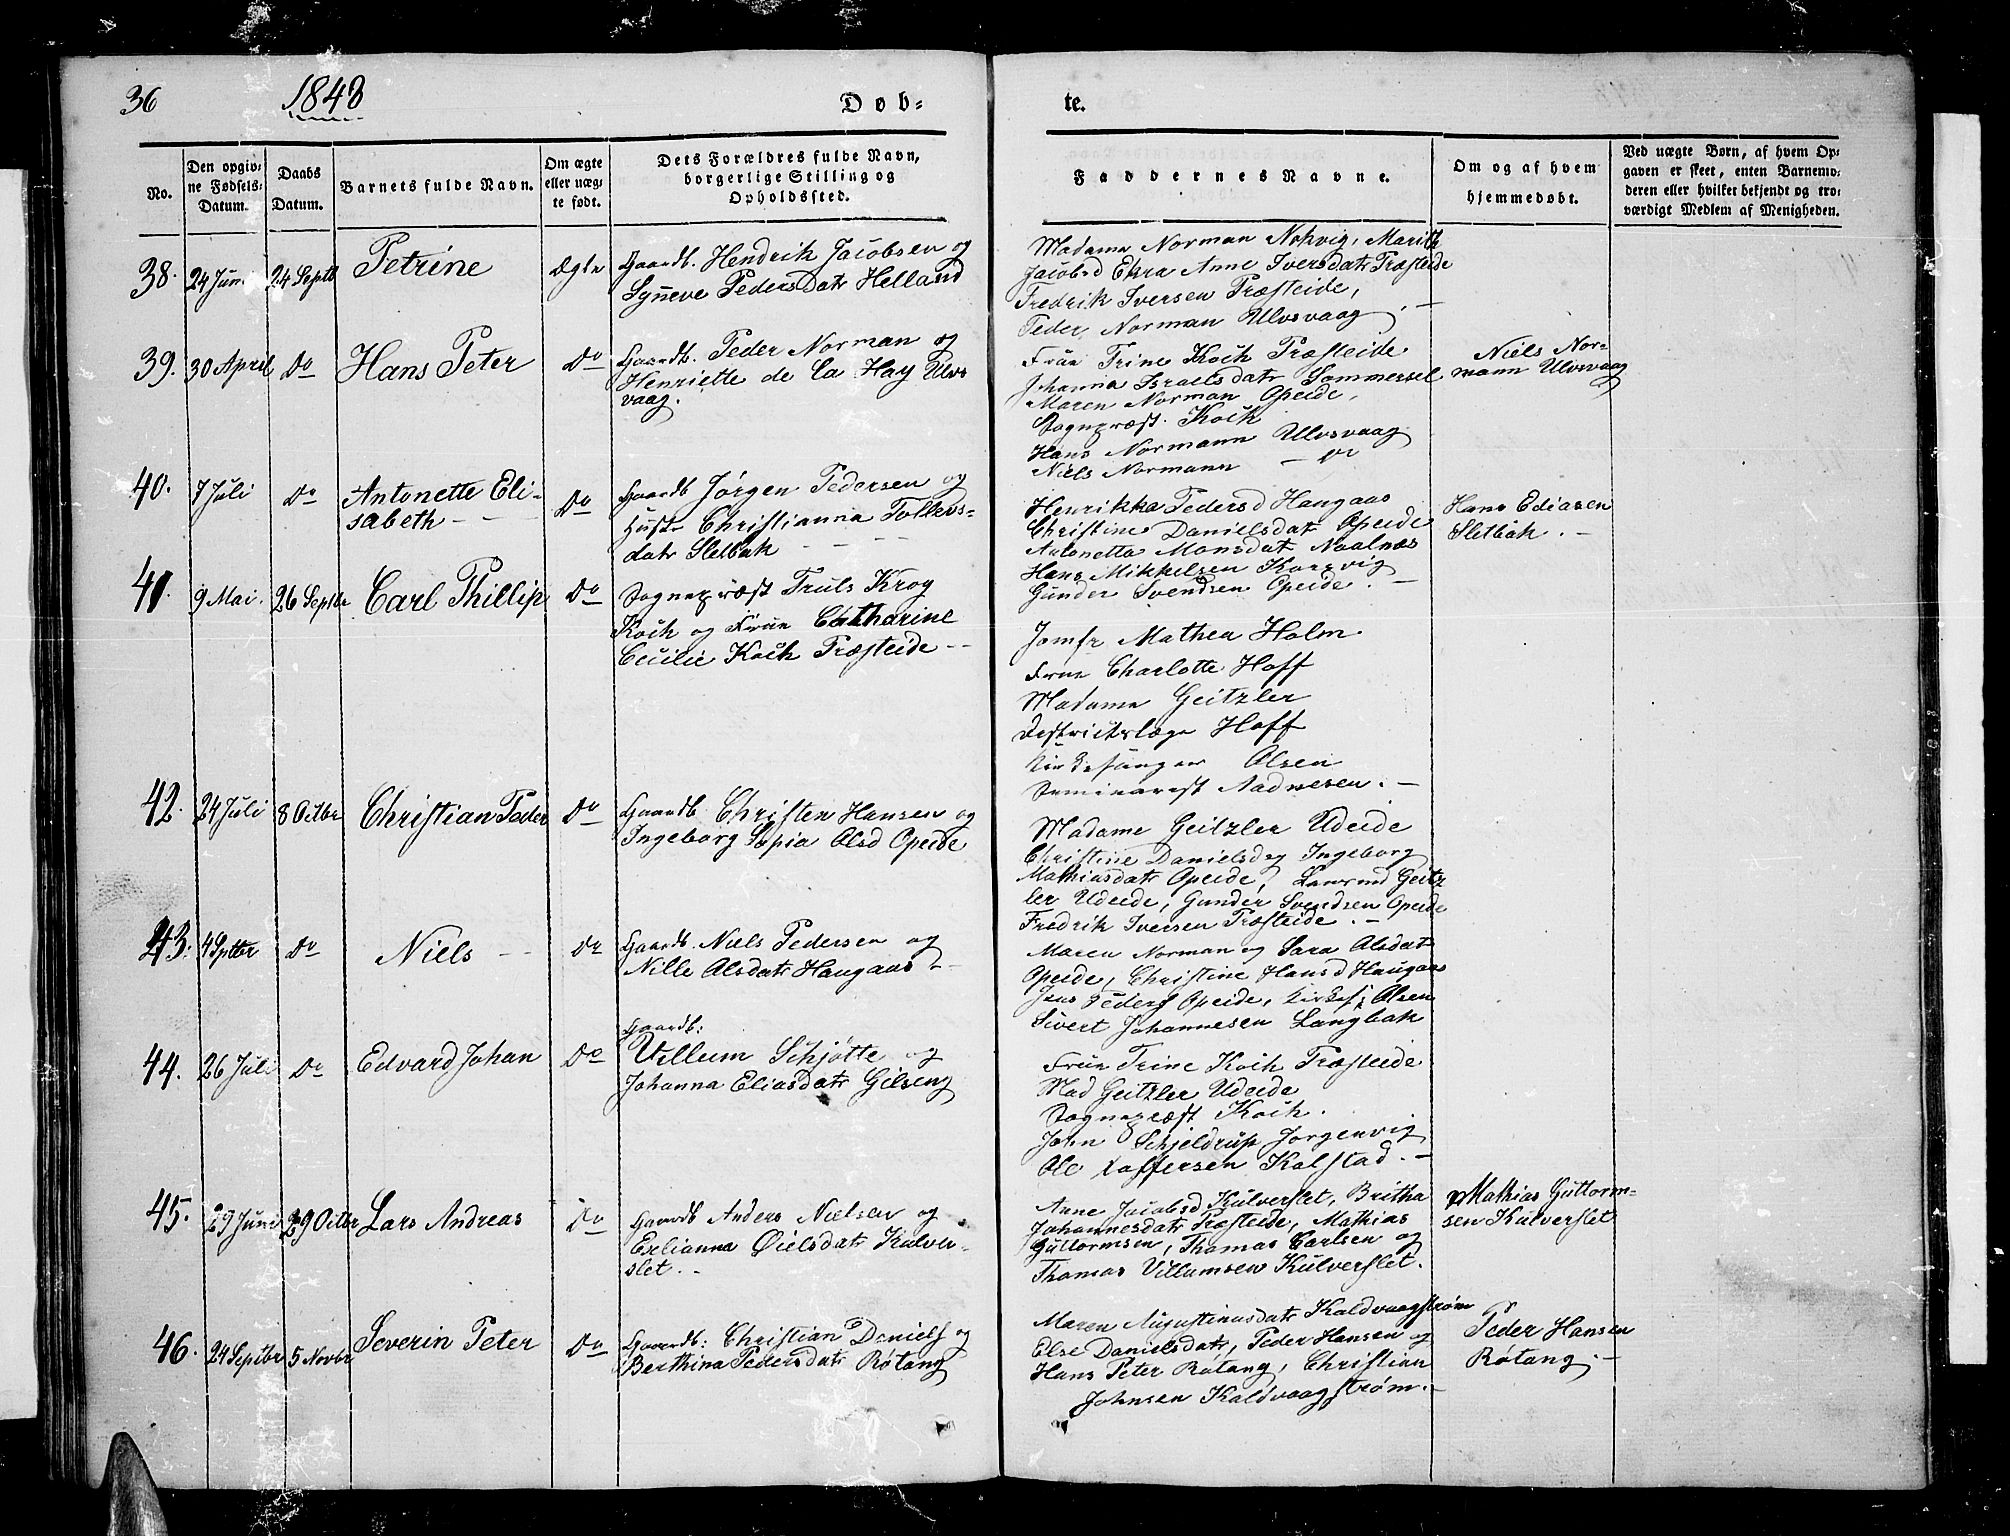 36
1848
Døb-
te.
No.
Den opgiv-
ne Fødsels-
Datum.
Daabs
Datum.
Barnets fulde Navn.
Om ægte
eller uæg-
te født.
Dets Forældres fulde Navn,
borgerlige Stilling og
Opholdssted.
Faddernes Navne.
Om og af hvem
hjemmedøbt.
Ved uægte Børn, af hvem Op-
gaven er skeet, enten Barnemo-
deren eller hvilket bekjendt og tro-
værdigt Medlem af Menigheden.
38. 24 Juni 24 Septb Petrine Ægte
Gaardb. Hendrik Jacobsen og
Synneve Pedersdatr Helland
Madame Norman Nohvig, Marith
Jacobsd Anne Iversdatr Præsteide
Fredrik Iversen Præsteide,
Peder Norman Ulvsvaag. -
39. 30 April Do Hans Peter Do
Gaardb. Peder Norman og
Henriette de la Hay Ulvs
vaag.
Frue Trine Koch Præsteide
Johanna Israelsdatr Sommersel
Maren Norman Opeide,
Sognepræst Koch
Hans Normann Ulvsvaag
Niels Normann - Do
Niels Nor-
mann Ulvsvaag
40. 7 Juli Do Antonette Eli-
sabeth - Do
Gaardb Jørgen Pedersen og
Hustr Christianna Tollevs-
datr Sletbak
Henrikka Pedersd Haugaas
Christine Danielsdatr Opeide
Antonetta Monsdatr Naalnæs
Hans Mikkelsen Korsvig
Gunder Svendsen Opeide. -
Hans Ediasen
Sletbak. -
41. 9 Mai. 26 Septbr Carl Phillip Do
Sognepræst Truls Krog
Koch og Frue Catharine
Cecilie Koch Præsteide -
Jomfr Mathea Holm
Frue Charlotte Hoff
Madame Geitzler
Districtslæge Hoff
Kirkesanger Olsen
Seminarist Aadnesen. -
42. 24 Juli 8 Octbr Christian Peder Do
Gaardb. Christen Hansen og
Ingeborg Sopia Olsd Opeide
Madame Geitzler Udeide
Christine Danielsd og Ingeborg
Mathiasdatr Opeide, Laurind Geitz
ler Udeide, Gunder Svendsen Opeide
Fredrik Iversen Præsteide. -
43. 4 Sptbr Do Niels - Do
Gaardb. Niels Pedersen og
Nille Olsdatr Haugaas -
Maren Norman og Sara Olsdatr
Opeide, Christine Hansd Haugaas
Jens Peders Opeide, Kirkes: Olsen
Sivert Johannesen Langbak
44. 26 Juli Do Edvard Johan Do
Gaardb:
Villum Schjøtte og
Johanna Eliasdatr Gilseng
Frue Trine Koch Præsteide
Mad Geitzler Udeide
Sognepræst Koch.
John Schjeldrup Jørgenvig
Ole Kaffersen Kalstad. -
45. 29 Juni 29 Octbr Lars Andreas Do
Gaardb Anders Nielsen og
Erlianna Øielsdatr Kulver-
slet. -
Anne Jacobsd Kulverslet, Britha
Johannesdatr Præsteide, Mathias
Guttormsen, Thomas Carlsen og
Thomas Villumsen Kulverslet.
Mathias Guttorm-
sen Kulverslet
46. 24 Septbr 5 Novbr Severin Peter Do
Gaardb: Christian Daniels og
Berthina Pedersdatr Røtang
Maren Augustinusdatr Kaldvaagstrøm
Else Danielsdatr, Peder Hansen og
Hans Peter Røtang, Christian
Johnsen Kaldvaagstrøm. -
Peder Hansen
Røtang. -